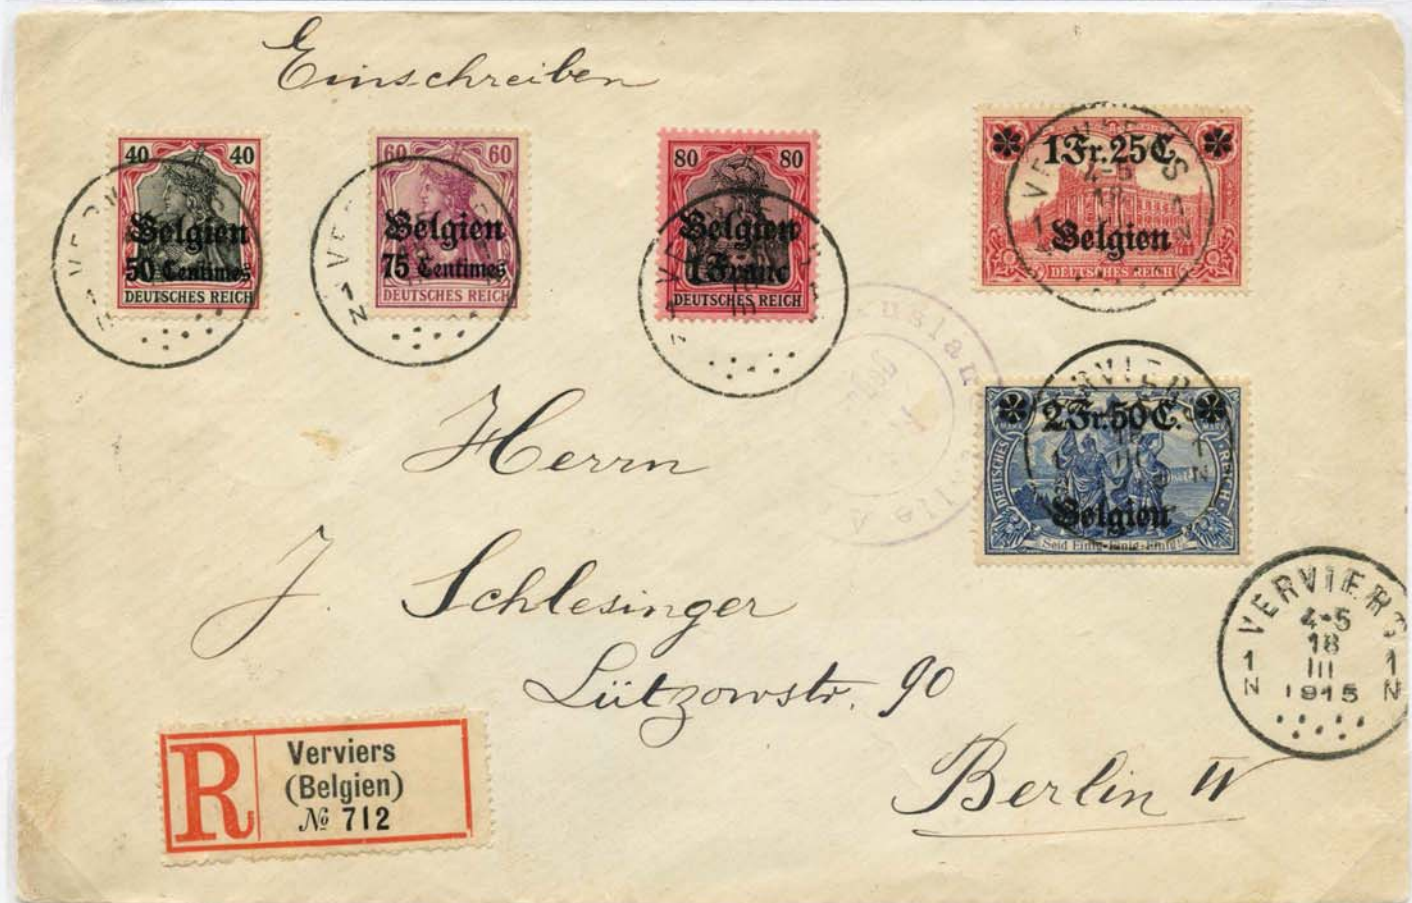 Einschreiben
40 40
Belgien
50 Centimes
DEUTSCHES REICH
60 60
Belgien
75 Centimes
DEUTSCHES REICH
80 80
Belgien
1 Franc
DEUTSCHES REICH
1 Fr. 25 C.
Belgien
DEUTSCHES REICH
2 Fr. 50 C.
DEUTSCHES REICH
Belgien
Seid Einig-Einig-Einig
Herrn
J. Schlesinger
Lützowstr. 90
Berlin W
VERVIERS
4-5
18
III
1915
1N 1N
R
Verviers
(Belgien)
№ 712